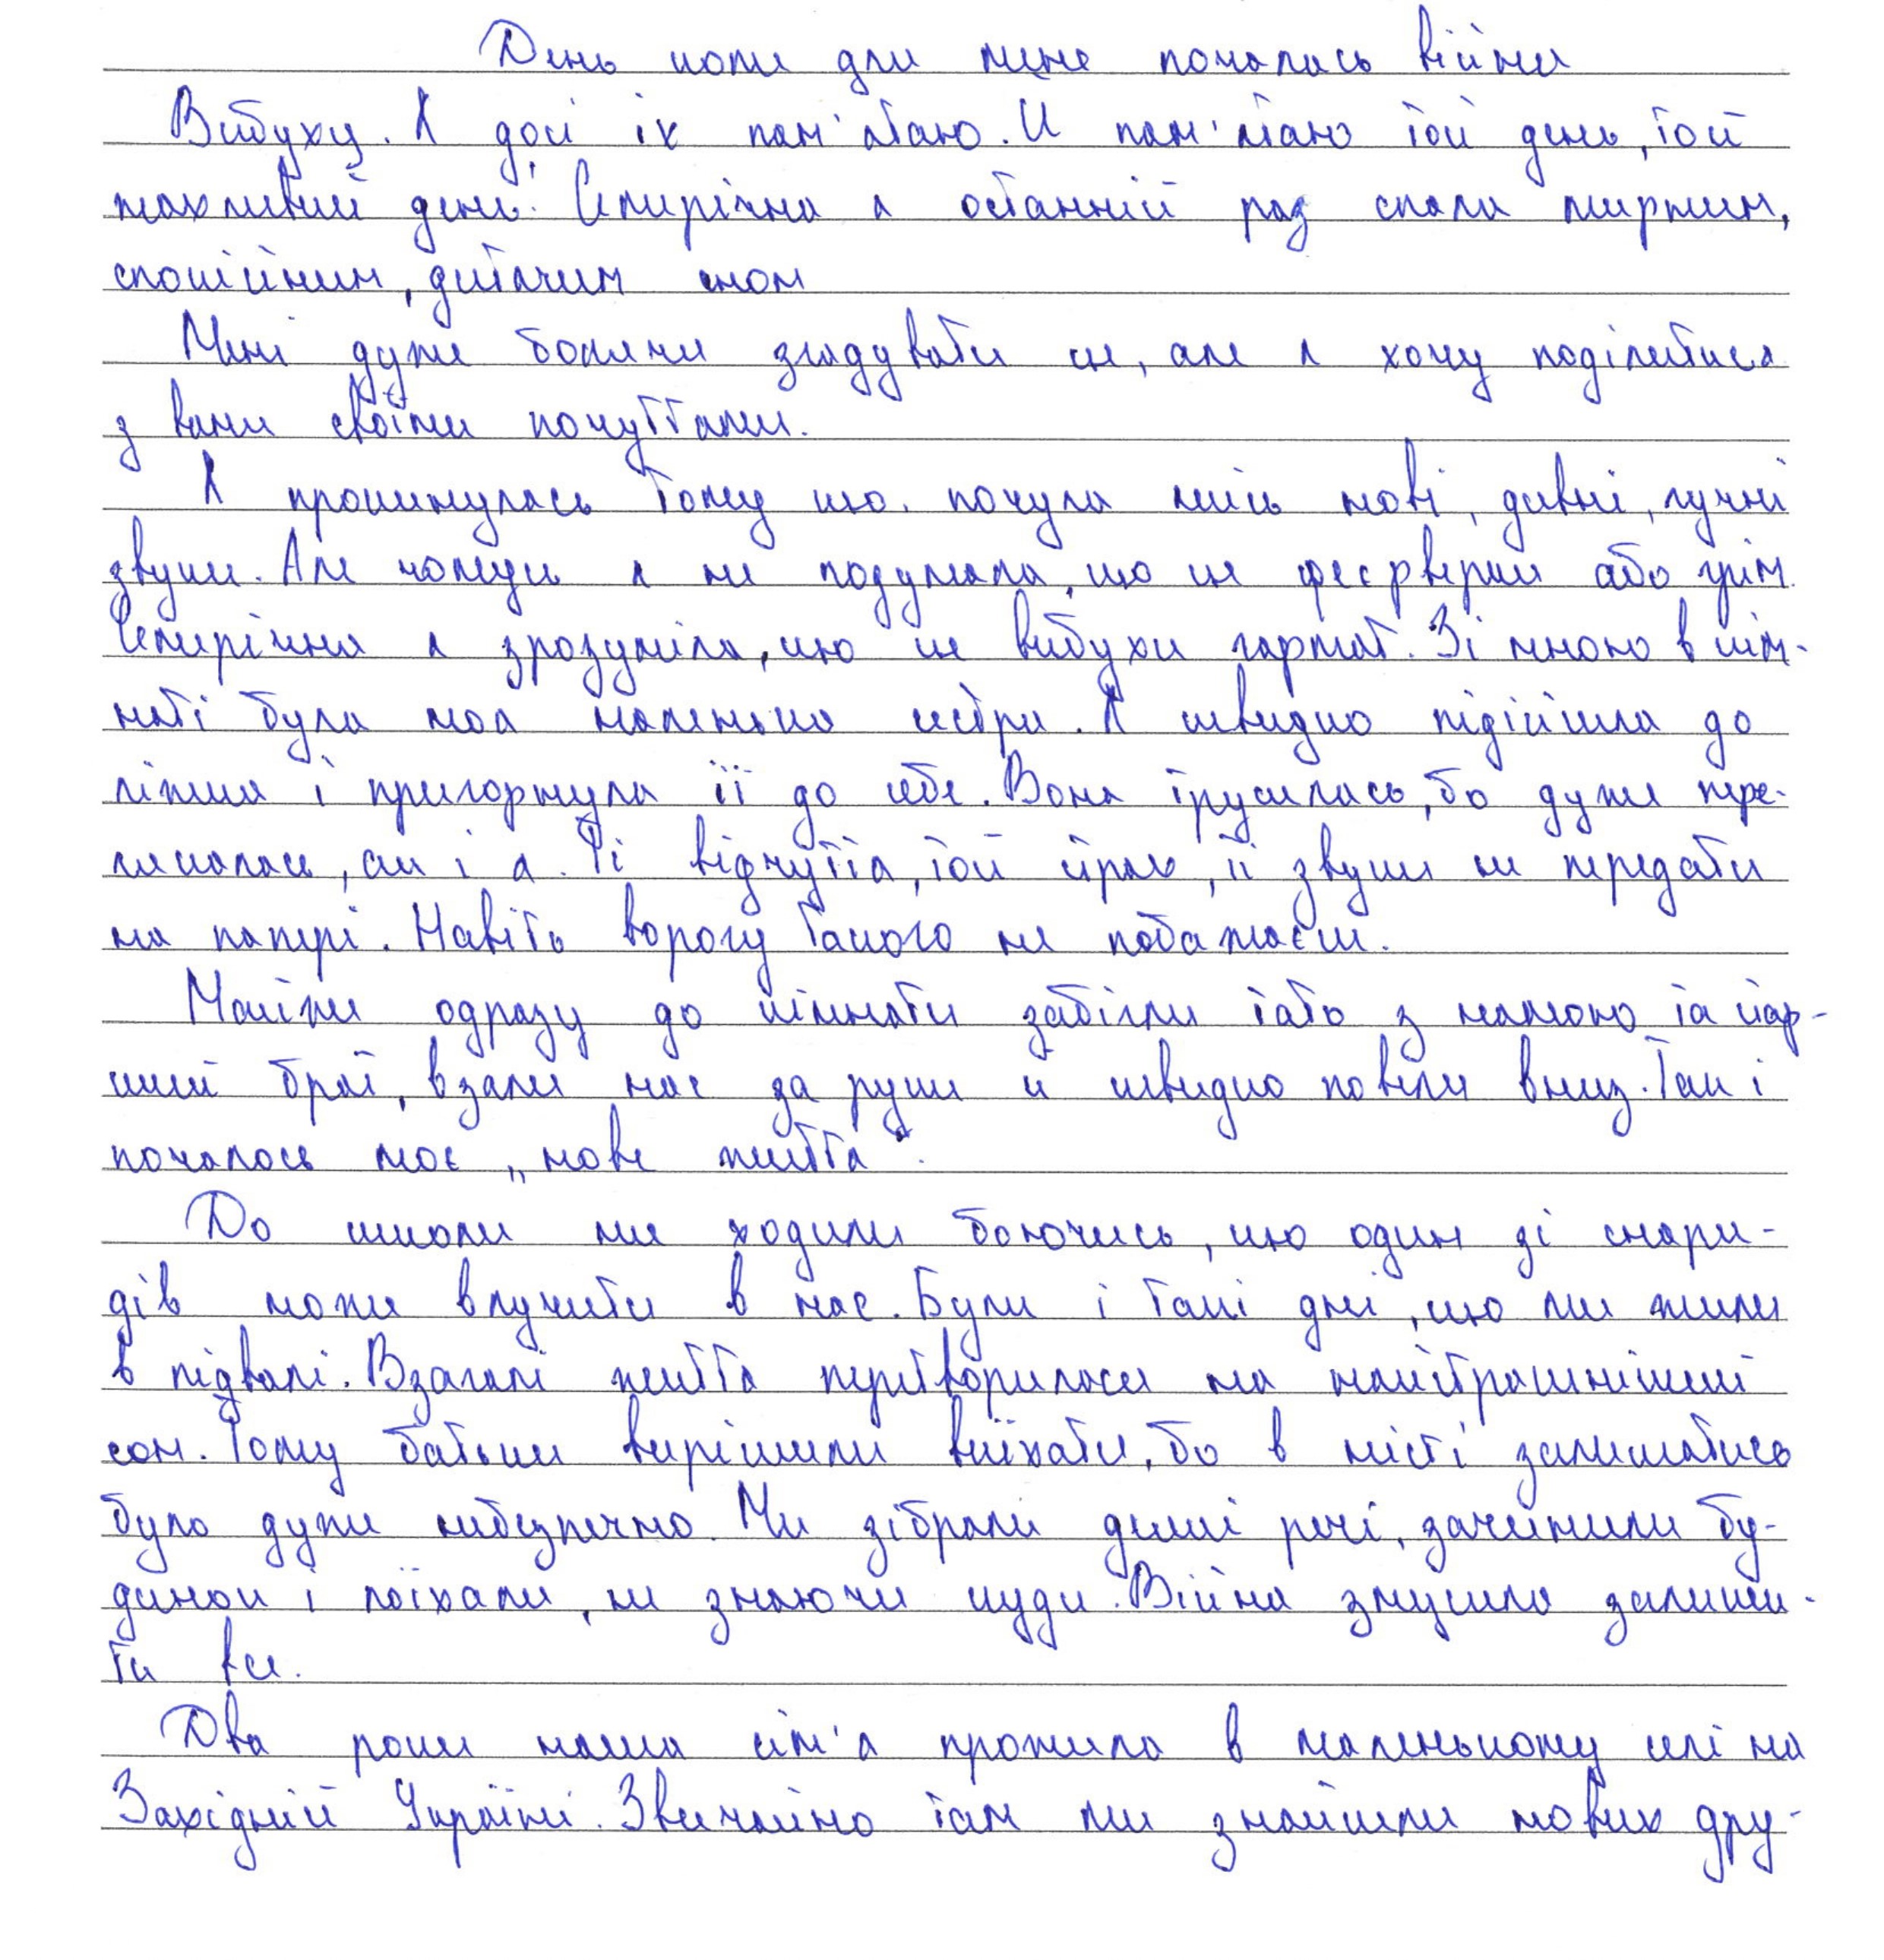 День коли для мене почалась війна
Вибухи. Я досі їх пам'ятаю. Й пам'ятаю той день, той
жахливий день. Чотирічна я останній раз спала мирним,
спокійним, дитячим сном
Мені дуже боляче згадувати це, але я хочу поділитися
з вами своїми почуттями.
Я прокинулась тому що почула якісь нові, дивні, гучні
звуки. Але чомусь я не подумала, що це феєрверки або грім.
я зрозуміла, що це вибухи гармат. Зі мною в кім-
наті була моя маленька сестра. Я швидко підійшла до
ліжка і пригорнула її до себе. Вона трусилась, бо дуже пере-
лякалась, як і я. Ті відчуття, той страх, ті звуки не передати
на папері. Навіть ворогу такого не побажаєш.
Майже одразу до кімнати забігли тато з мамою та стар-
ший брат, взяли нас за руки й швидко повели вниз. Так і
почалось моє „нове життя".
До школи ми ходили боючись, що один зі снаря-
дів може влучити в нас. Були і такі дні, що ми жили
в підвалі. Взагалі життя перетворилося на найстрашніший
сон. Тому батьки вирішили виїхати, бо в місті залишатись
було дуже небезпечно. Ми зібрали деякі речі, зачинили бу-
динок і поїхали, не знаючи куди. Війна змусила залиши-
ти все.
Два роки наша сім'я прожила в маленькому селі на
Західній Україні. Звичайно там ми знайшли нових дру-